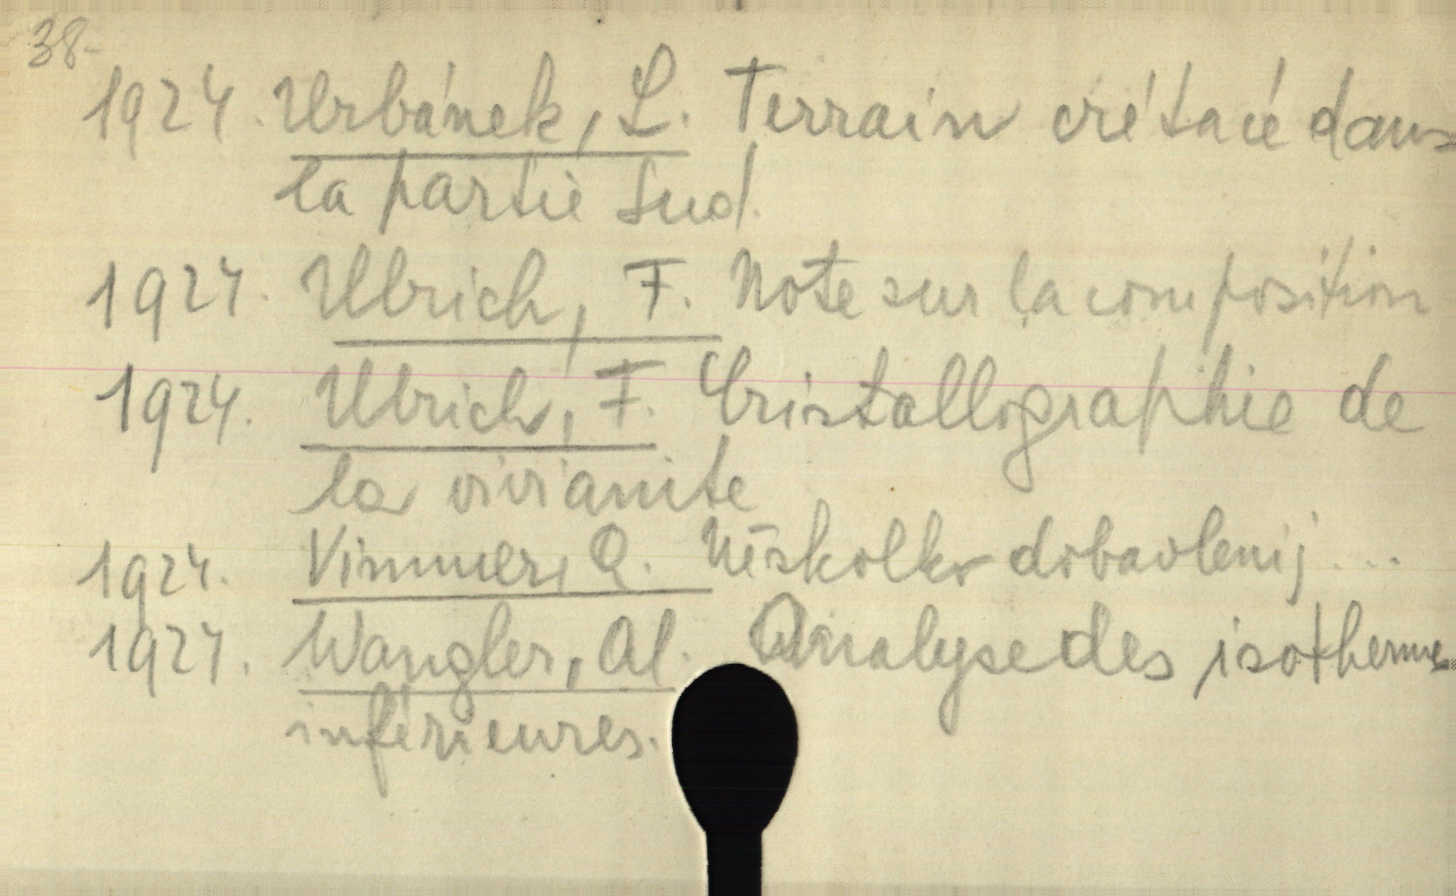 38-
1924. Urbánek, L. Terrain crétacé dans
la partie sud.
1924. Ulrich, F. Note sur la composition
1924. Ulrich, F. Cristallographie de
la vivianite
1924. Vimmer, A. Něskolko dobavlenij...
1924. Wangler, Al. Analyse des isothermes
inférieures.